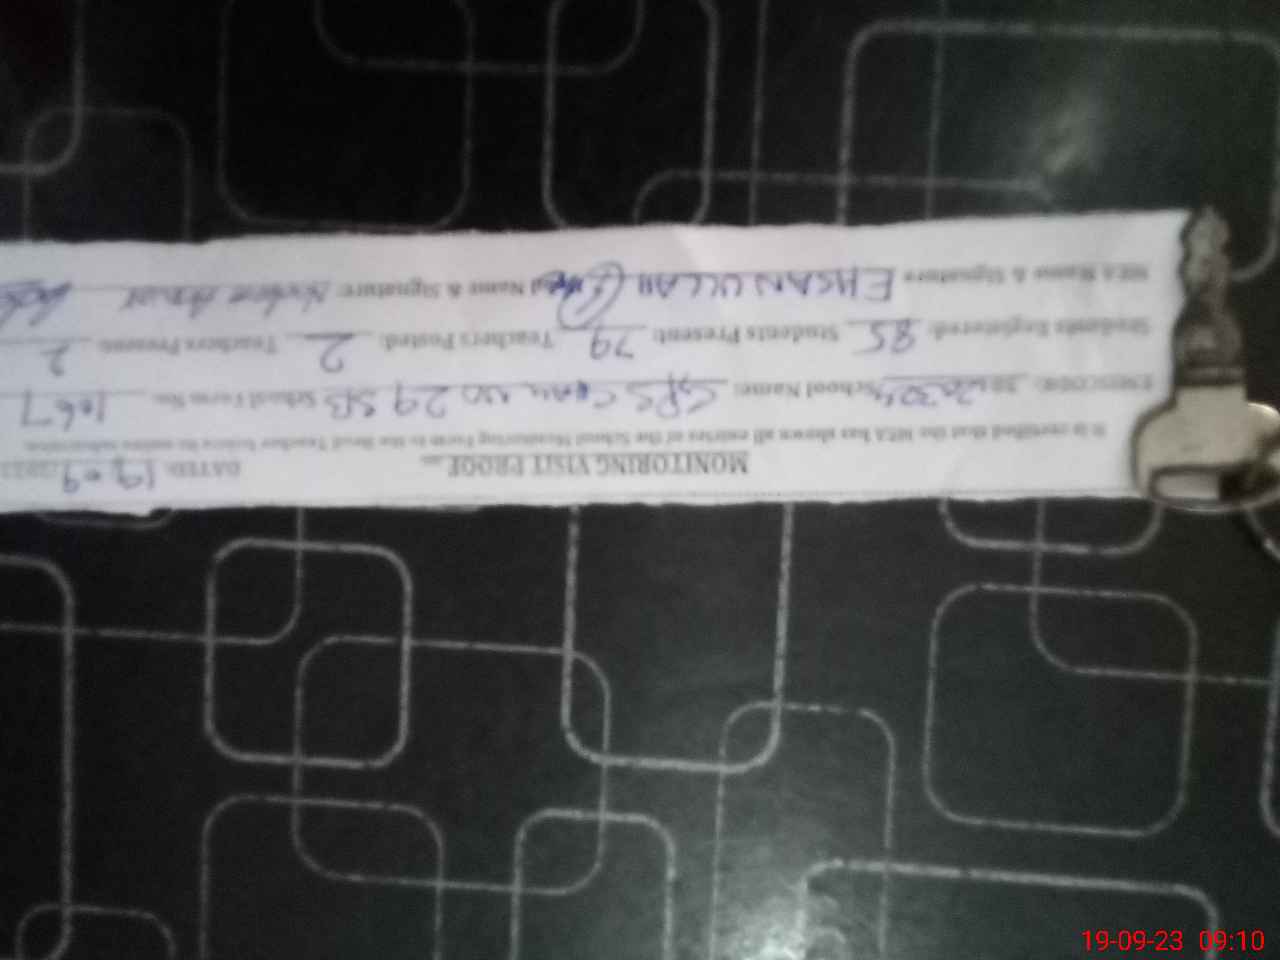 MONITORING VISIT PROOF DATED: 19-09
It is certified that the MEA has shown all entries of the School Monitoring Form to the Head Teacher before its online submission
EMISCODE: School Name: GPS CHAK NO 29 SB School Form No. 1067
Students Registered: 85 Students Present: 79 Teachers Posted: 2 Teachers Present: 2
MEA Name & Signature EHSAN ULLAH Name & Signature:
19-09-23 09:10